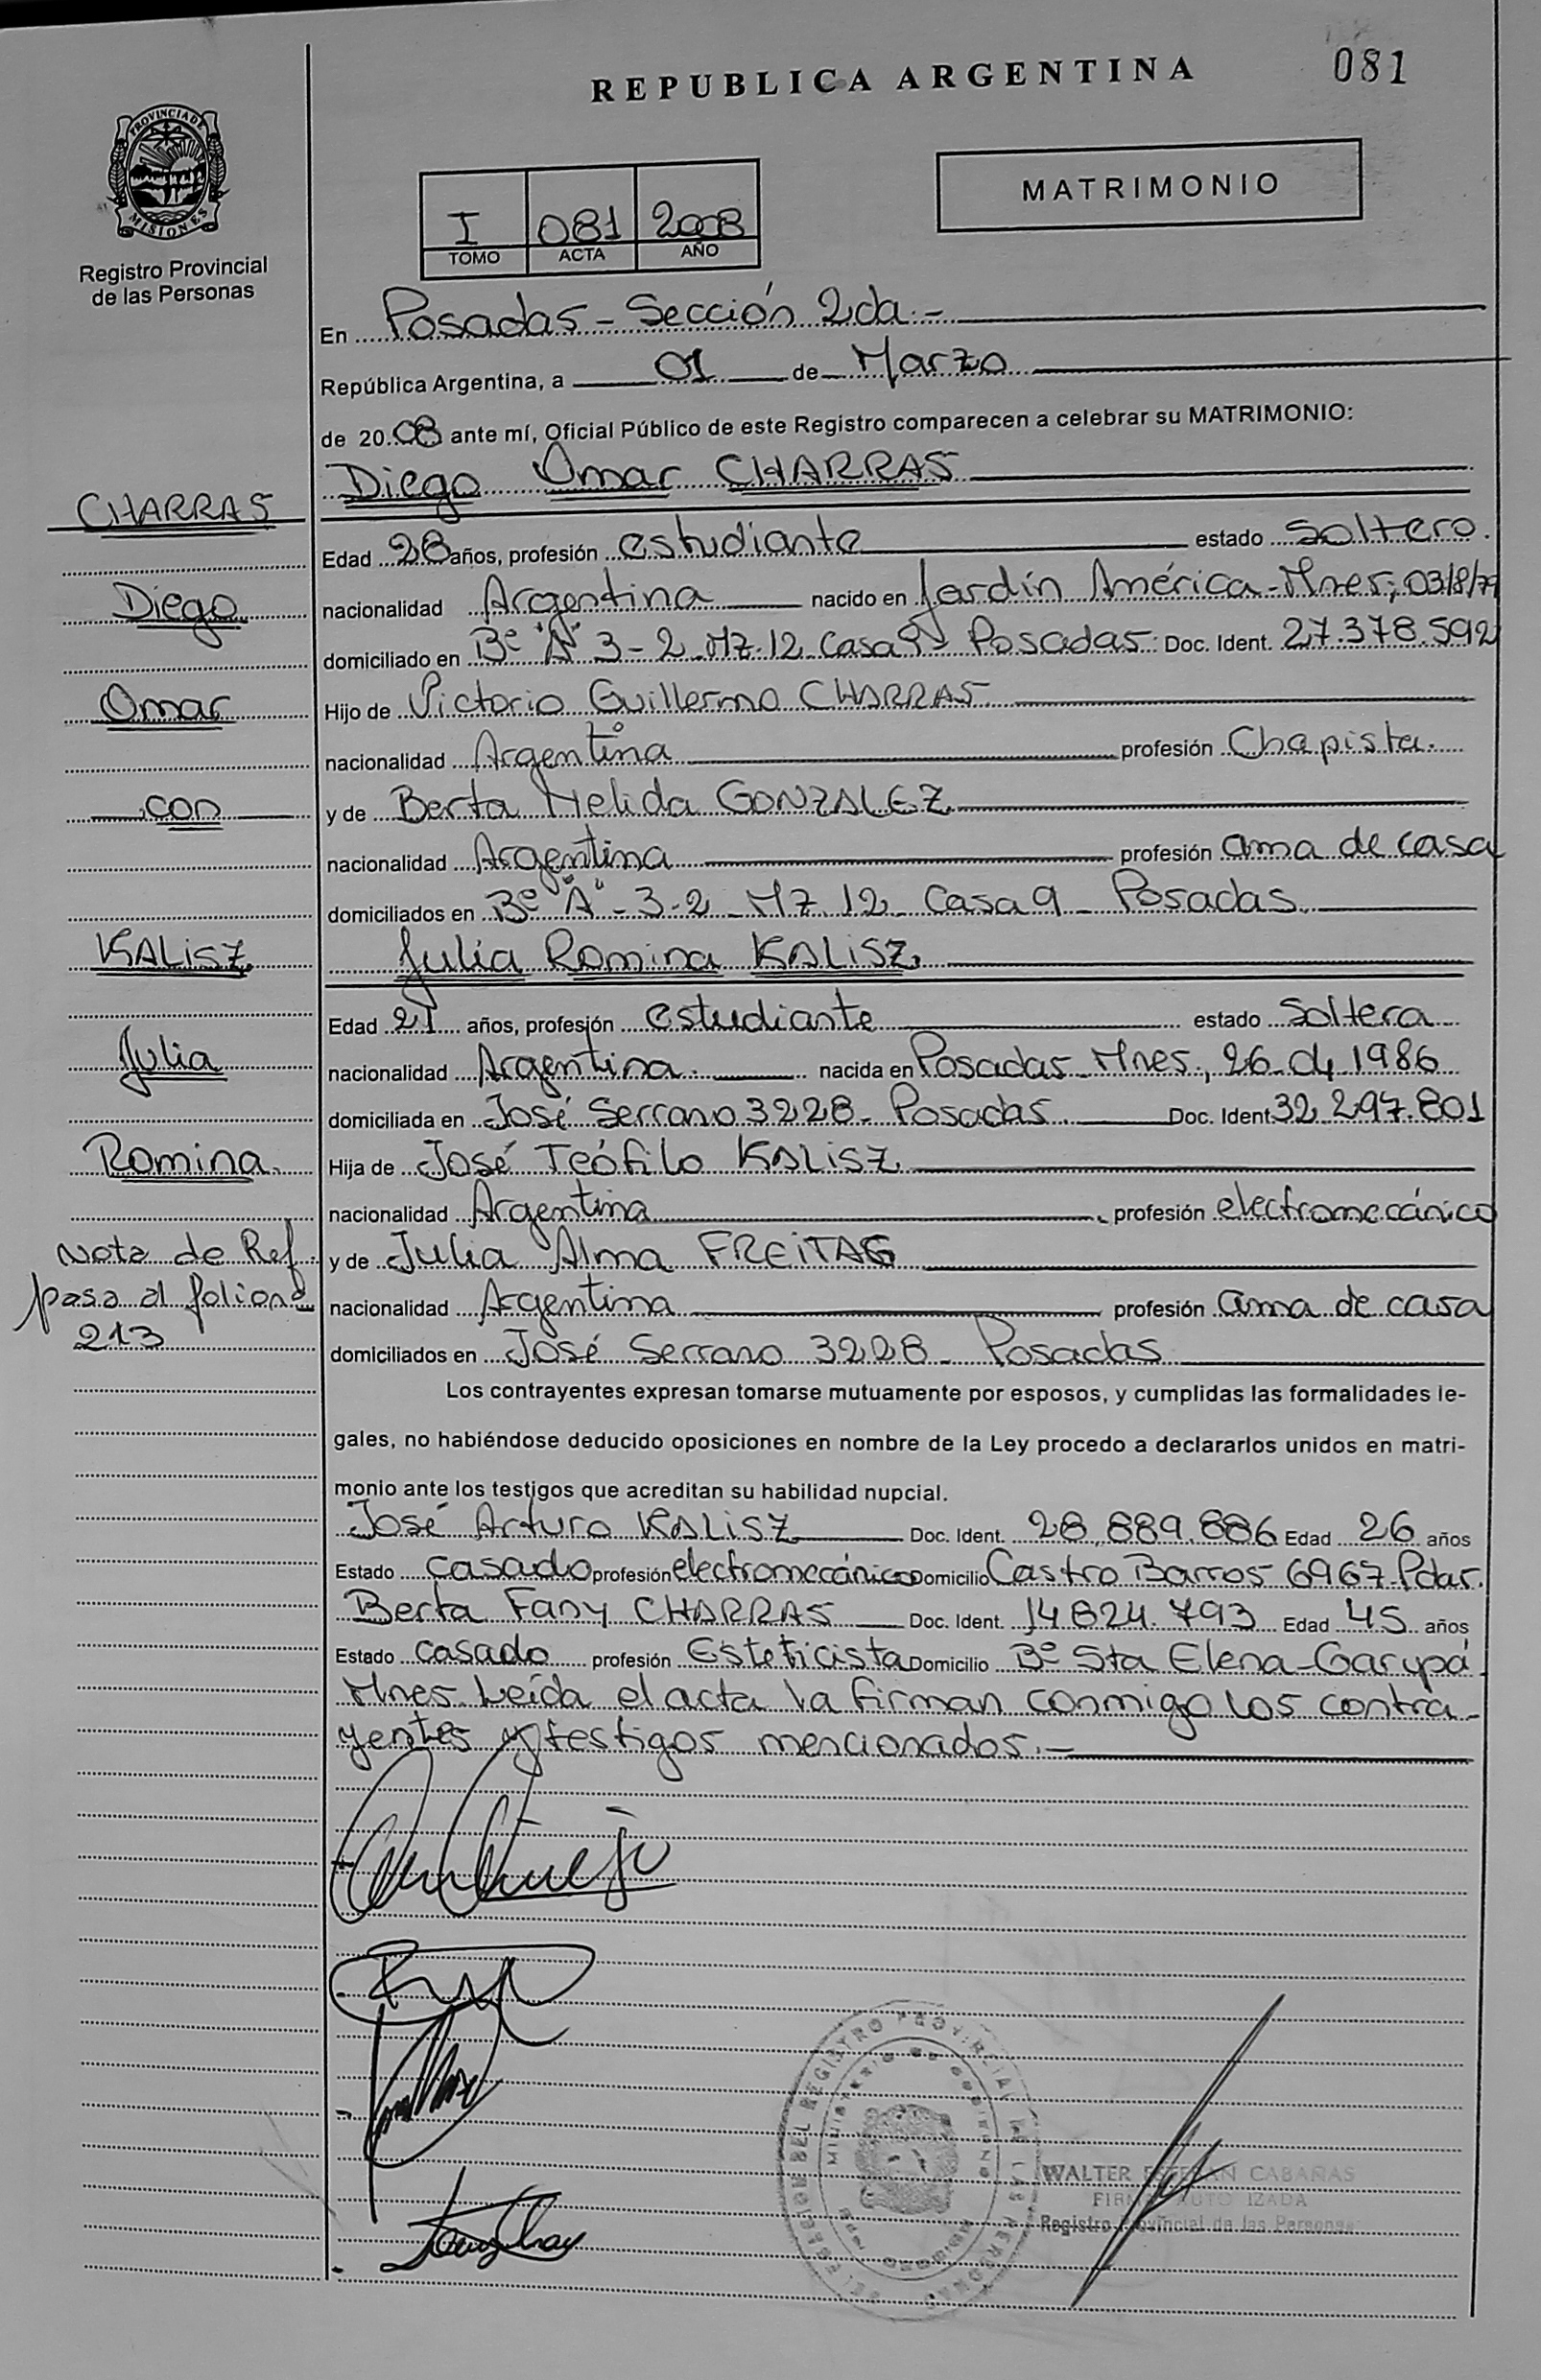 REPUBLICA ARGENTINA
081
PROVINCIA DE MISIONES
Registro Provincial
de las Personas
MATRIMONIO
I 081 2008
TOMO ACTA AÑO
En Posadas - Sección 2da.-
República Argentina, a 01 de Marzo
de 2008 ante mí, Oficial Público de este Registro comparecen a celebrar su MATRIMONIO:
Diego Omar CHARRAS
CHARRAS
Edad 28 años, profesión estudiante estado soltero.
Diego
nacionalidad Argentina nacido en Jardín América-Mnes; 03/8/79
domiciliado en Bº "A" 3-2 Mz.12 Casa 9 Posadas Doc. Ident. 27.378.592
Omar
Hijo de Victorio Guillermo CHARRAS
nacionalidad Argentina profesión Chapista.
con
y de Berta Nelida GONZALEZ
nacionalidad Argentina profesión ama de casa
domiciliados en Bº "A" - 3-2 - Mz.12 - Casa 9 - Posadas.
KALISZ
Julia Romina KALISZ
Edad 21 años, profesión estudiante estado soltera
Julia
nacionalidad Argentina. nacida en Posadas - Mnes., 26-04 1986
domiciliada en José Serrano 3228 - Posadas Doc. Ident. 32.297.801
Romina
Hija de José Teófilo KALISZ
nacionalidad Argentina profesión electromecánico
Nota de Ref.
y de Julia Alma FREITAG
pasa al folio nº
nacionalidad Argentina profesión ama de casa
213
domiciliados en José Serrano 3228 - Posadas
Los contrayentes expresan tomarse mutuamente por esposos, y cumplidas las formalidades le-
gales, no habiéndose deducido oposiciones en nombre de la Ley procedo a declararlos unidos en matri-
monio ante los testigos que acreditan su habilidad nupcial.
José Arturo KALISZ Doc. Ident. 28.889.886 Edad 26 años
Estado casado profesión electromecánico Domicilio Castro Barros 6967-Pdas.
Berta Fany CHARRAS Doc. Ident. 14.824.793 Edad 45 años
Estado casado profesión Esteticista Domicilio Bº Sta Elena-Garupá
Mnes. Leída el acta la firman conmigo los contra-
yentes y testigos mencionados.-
WALTER ESTEBAN CABAÑAS
FIRMA AUTORIZADA
Registro Provincial de las Personas